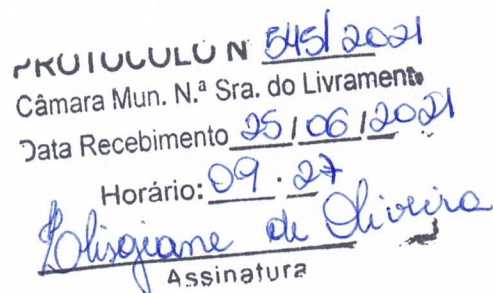 PROTOCOLO N 545/2021
Câmara Mun. N.ª Sra. do Livramento
Data Recebimento 25/06/2021
Horário: 09.27
de Oliveira
Assinatura